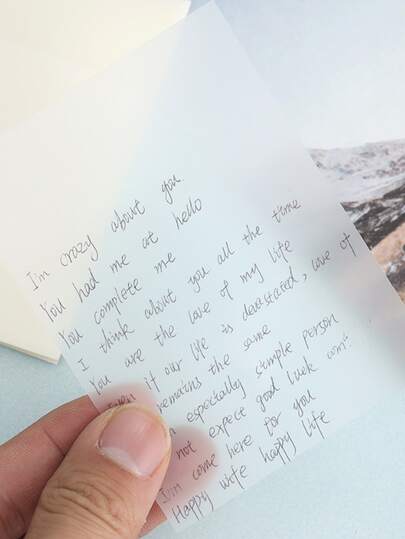 I'm crazy about you.
You had me at hello
You complete me
I think about you all the time
You are the love of my life
if our life is devastated, love of
remains the same
especially simple person
not expect good luck
I'm come here for you
Happy wife happy life